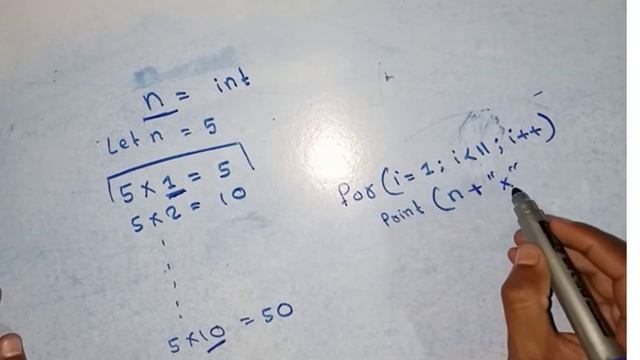 n = int
Let n = 5
5 × 1 = 5
5 × 2 = 10
5 × 10 = 50
for (i = 1; i < 11; i++)
Print (n + "x"